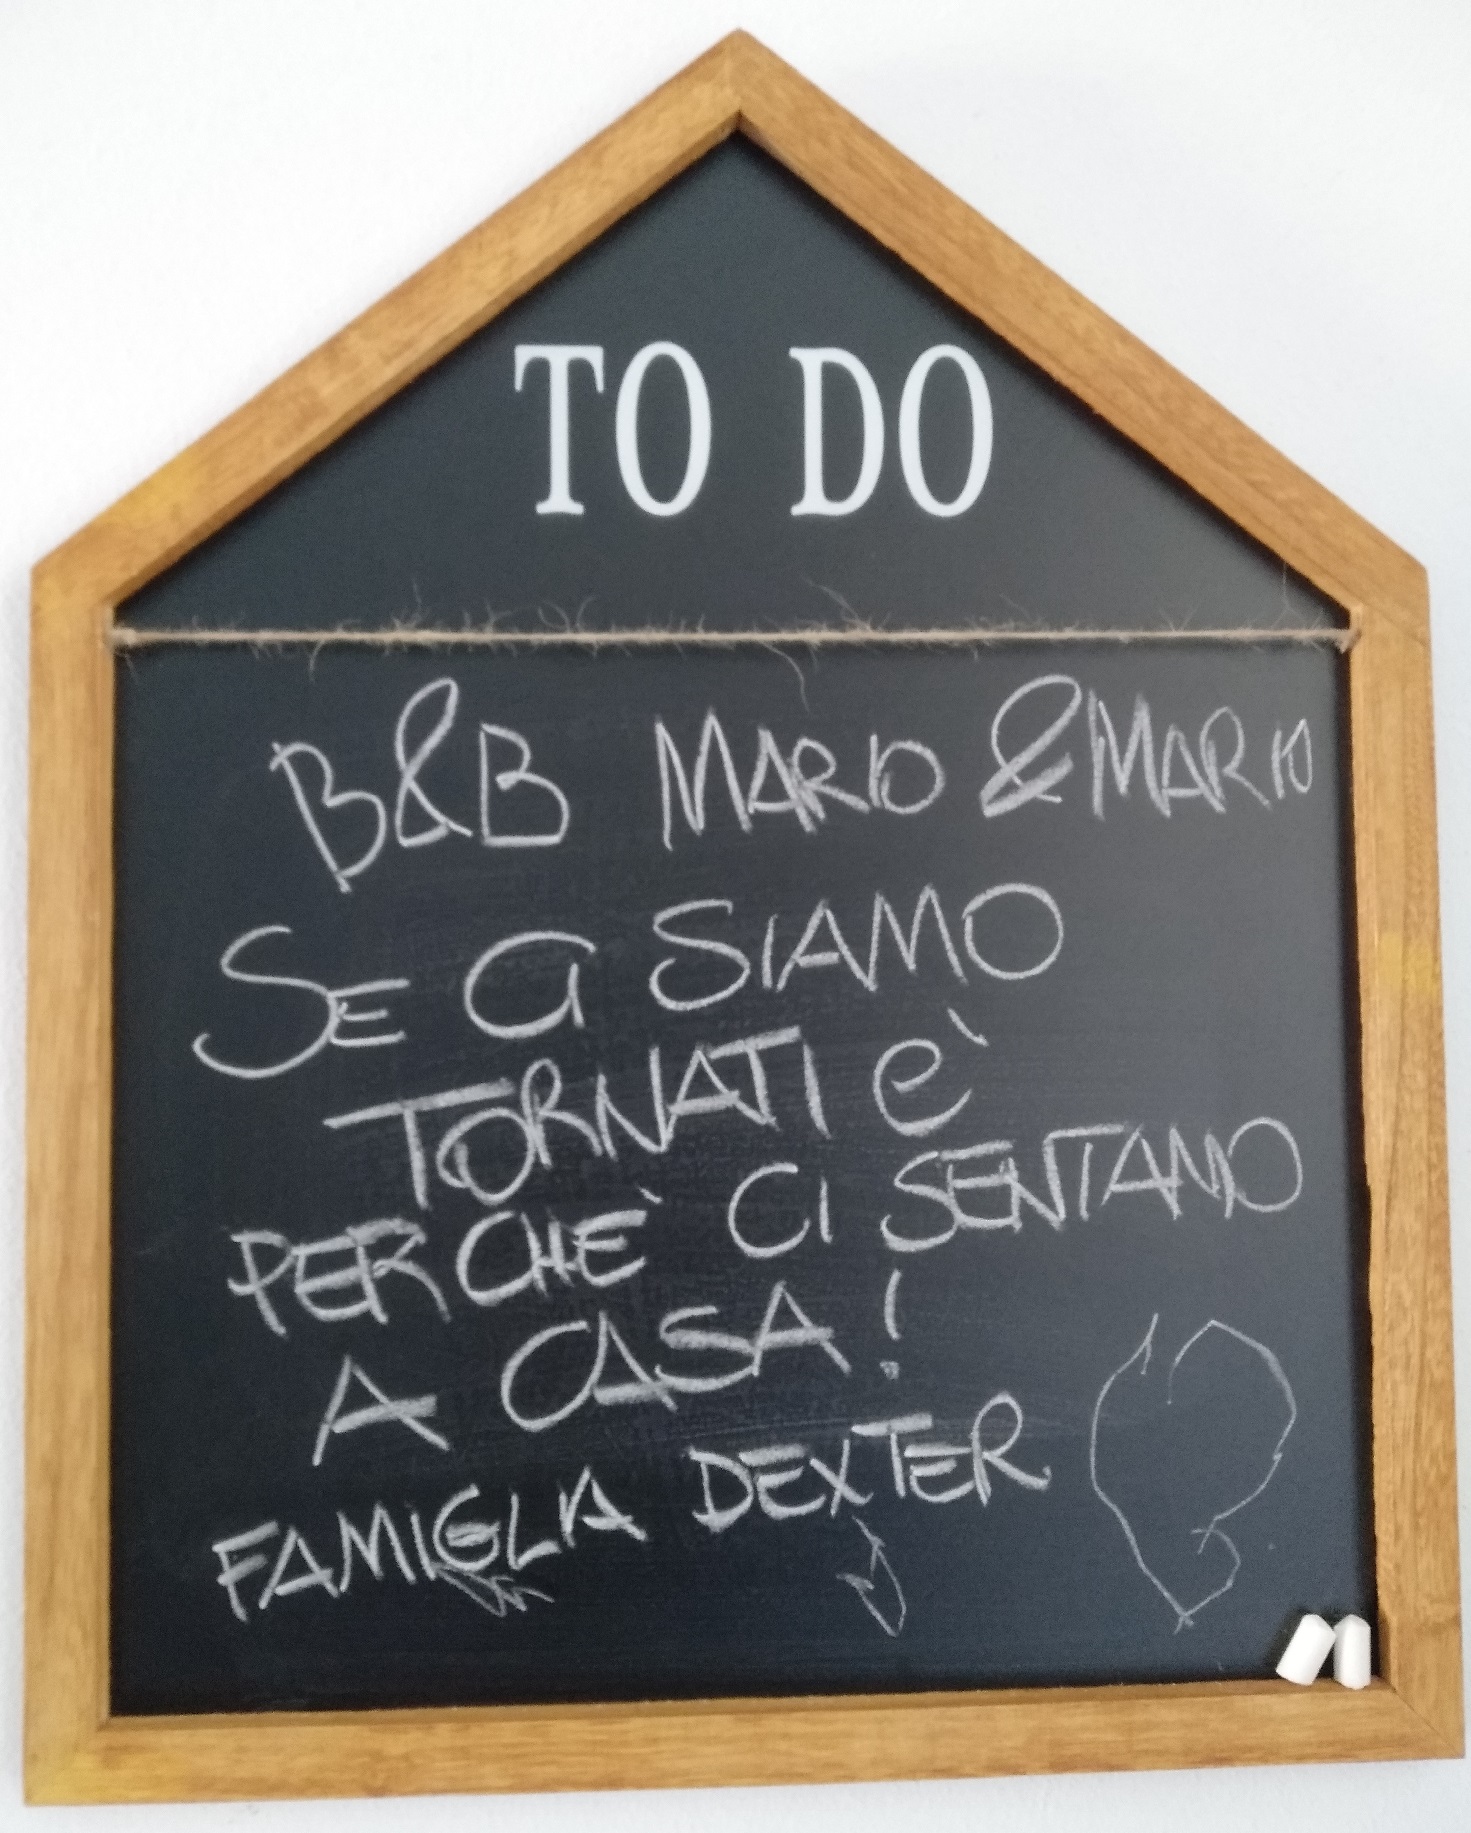 TO DO
B&B MARIO & MARIO
SE CI SIAMO
TORNATI è
PERCHÈ CI SENTIAMO
A CASA!
FAMIGLIA DEXTER